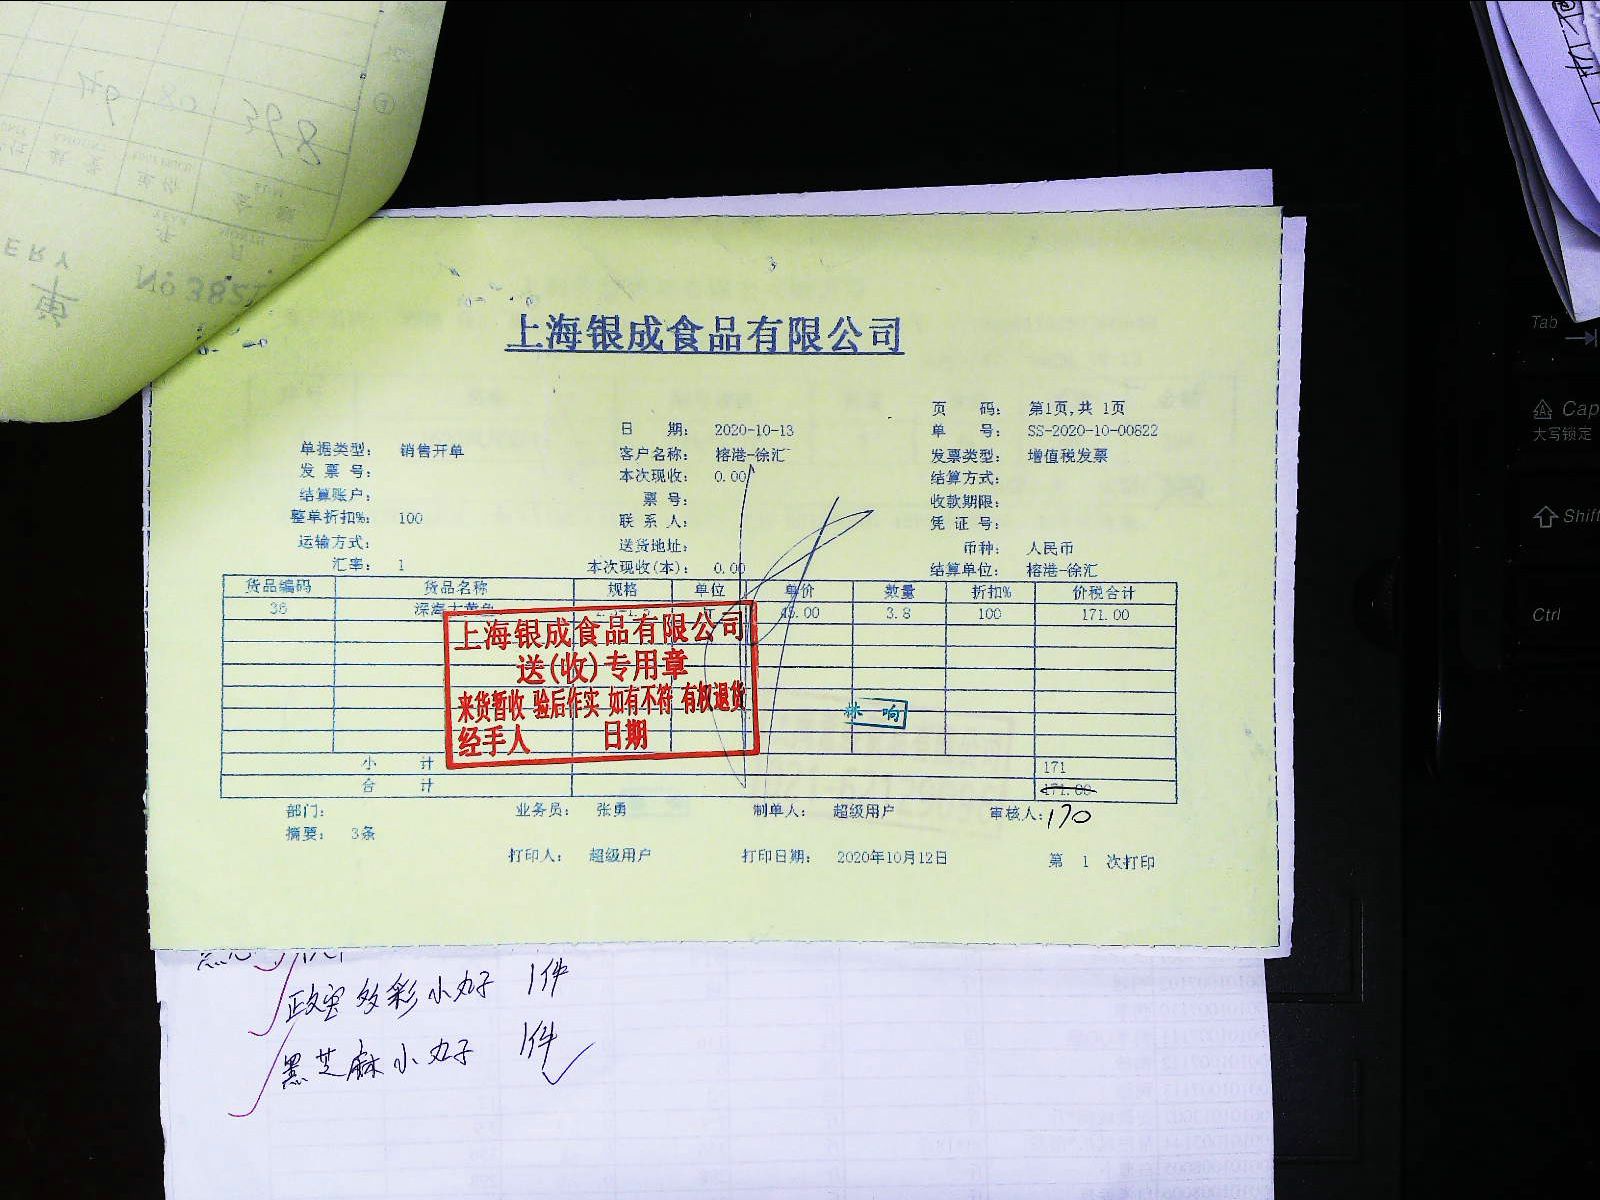 上海银成食品有限公司
页 码: 第1页,共 1页
日 期: 2020-10-13 单 号: SS-2020-10-00822
单据类型: 销售开单 客户名称: 榕港-徐汇 发票类型: 增值税发票
发 票 号: 本次现收: 0.00 结算方式:
结算账户: 票号: 收款期限:
整单折扣%: 100 联 系 人: 凭 证 号:
运输方式: 送货地址: 币种: 人民币
汇率: 1 本次现收(本): 0.00 结算单位: 榕港-徐汇
货品编码 货品名称 规格 单位 单价 数量 折扣% 价税合计
36 深海大黄鱼 45.00 3.8 100 171.00
上海银成食品有限公司
送(收)专用章
来货暂收 验后作实 如有不符 有权退货
经手人 日期
林 响
小 计 171
合 计 171.00
部门: 业务员: 张勇 制单人: 超级用户 审核人: 170
摘要: 3条
打印人: 超级用户 打印日期: 2020年10月12日 第 1 次打印
多彩小丸子 1件
黑芝麻小丸子 1件
Tab
Cap
大写锁定
Shift
Ctrl